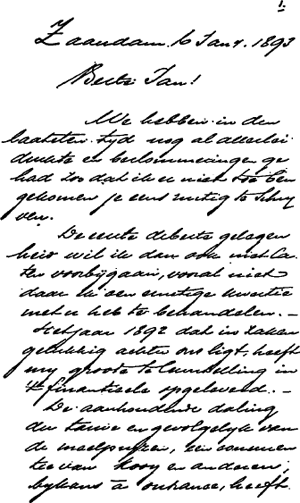 1.
Zaandam 16 Jan. 1893
Beste Jan!
We hebben in den
laatsten tijd nog al allerlei
drukte en beslommeringen ge
had zoo dat ik er niet toe ben
gekomen je eens rustig te schrij
ven.
De eerste debets gelagen
heir wil ik dan ook met
voorbijgaan, vooral niet
daar ik een ernstige kwestie
met u heb te behandelen. —
Het jaar 1892 dat in zaken
gelukkig achter ons ligt, heeft
my groote te leurstelling in
financieele opgeleverd. —
De aanhoudende daling
der en gevolgelyk van
de maalpryzen, een
tie van Kooy en anderen,
bykans à outrance, heeft